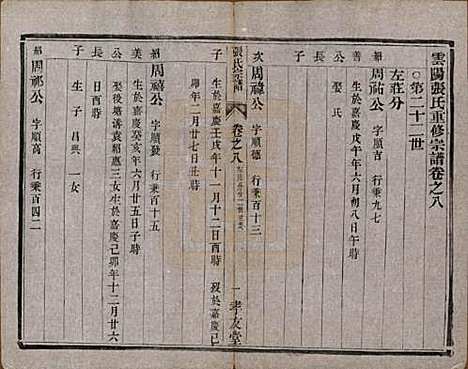 雲陽張氏重修宗譜卷之八
○第二十二世
左莊分
善公長子
周祐公 字順吉 行秉九七
生於嘉慶戊午年六月初八日午時
娶 氏
次子
周禕公 字順德 行秉百十三
張氏宗譜 卷之八 一 孝友堂
生於嘉慶壬戌年十一月十二日酉時 歿於嘉慶己
卯年二月廿七日丑時
紹美公長子
周禧公 字順發 行秉百十五
生於嘉慶癸亥年六月廿五日子時
娶後塘袁紹惠三女生於嘉慶己卯年十二月廿六
日酉時
生子 昌興 一女
紹子
周祁公 字順高 行秉百四二